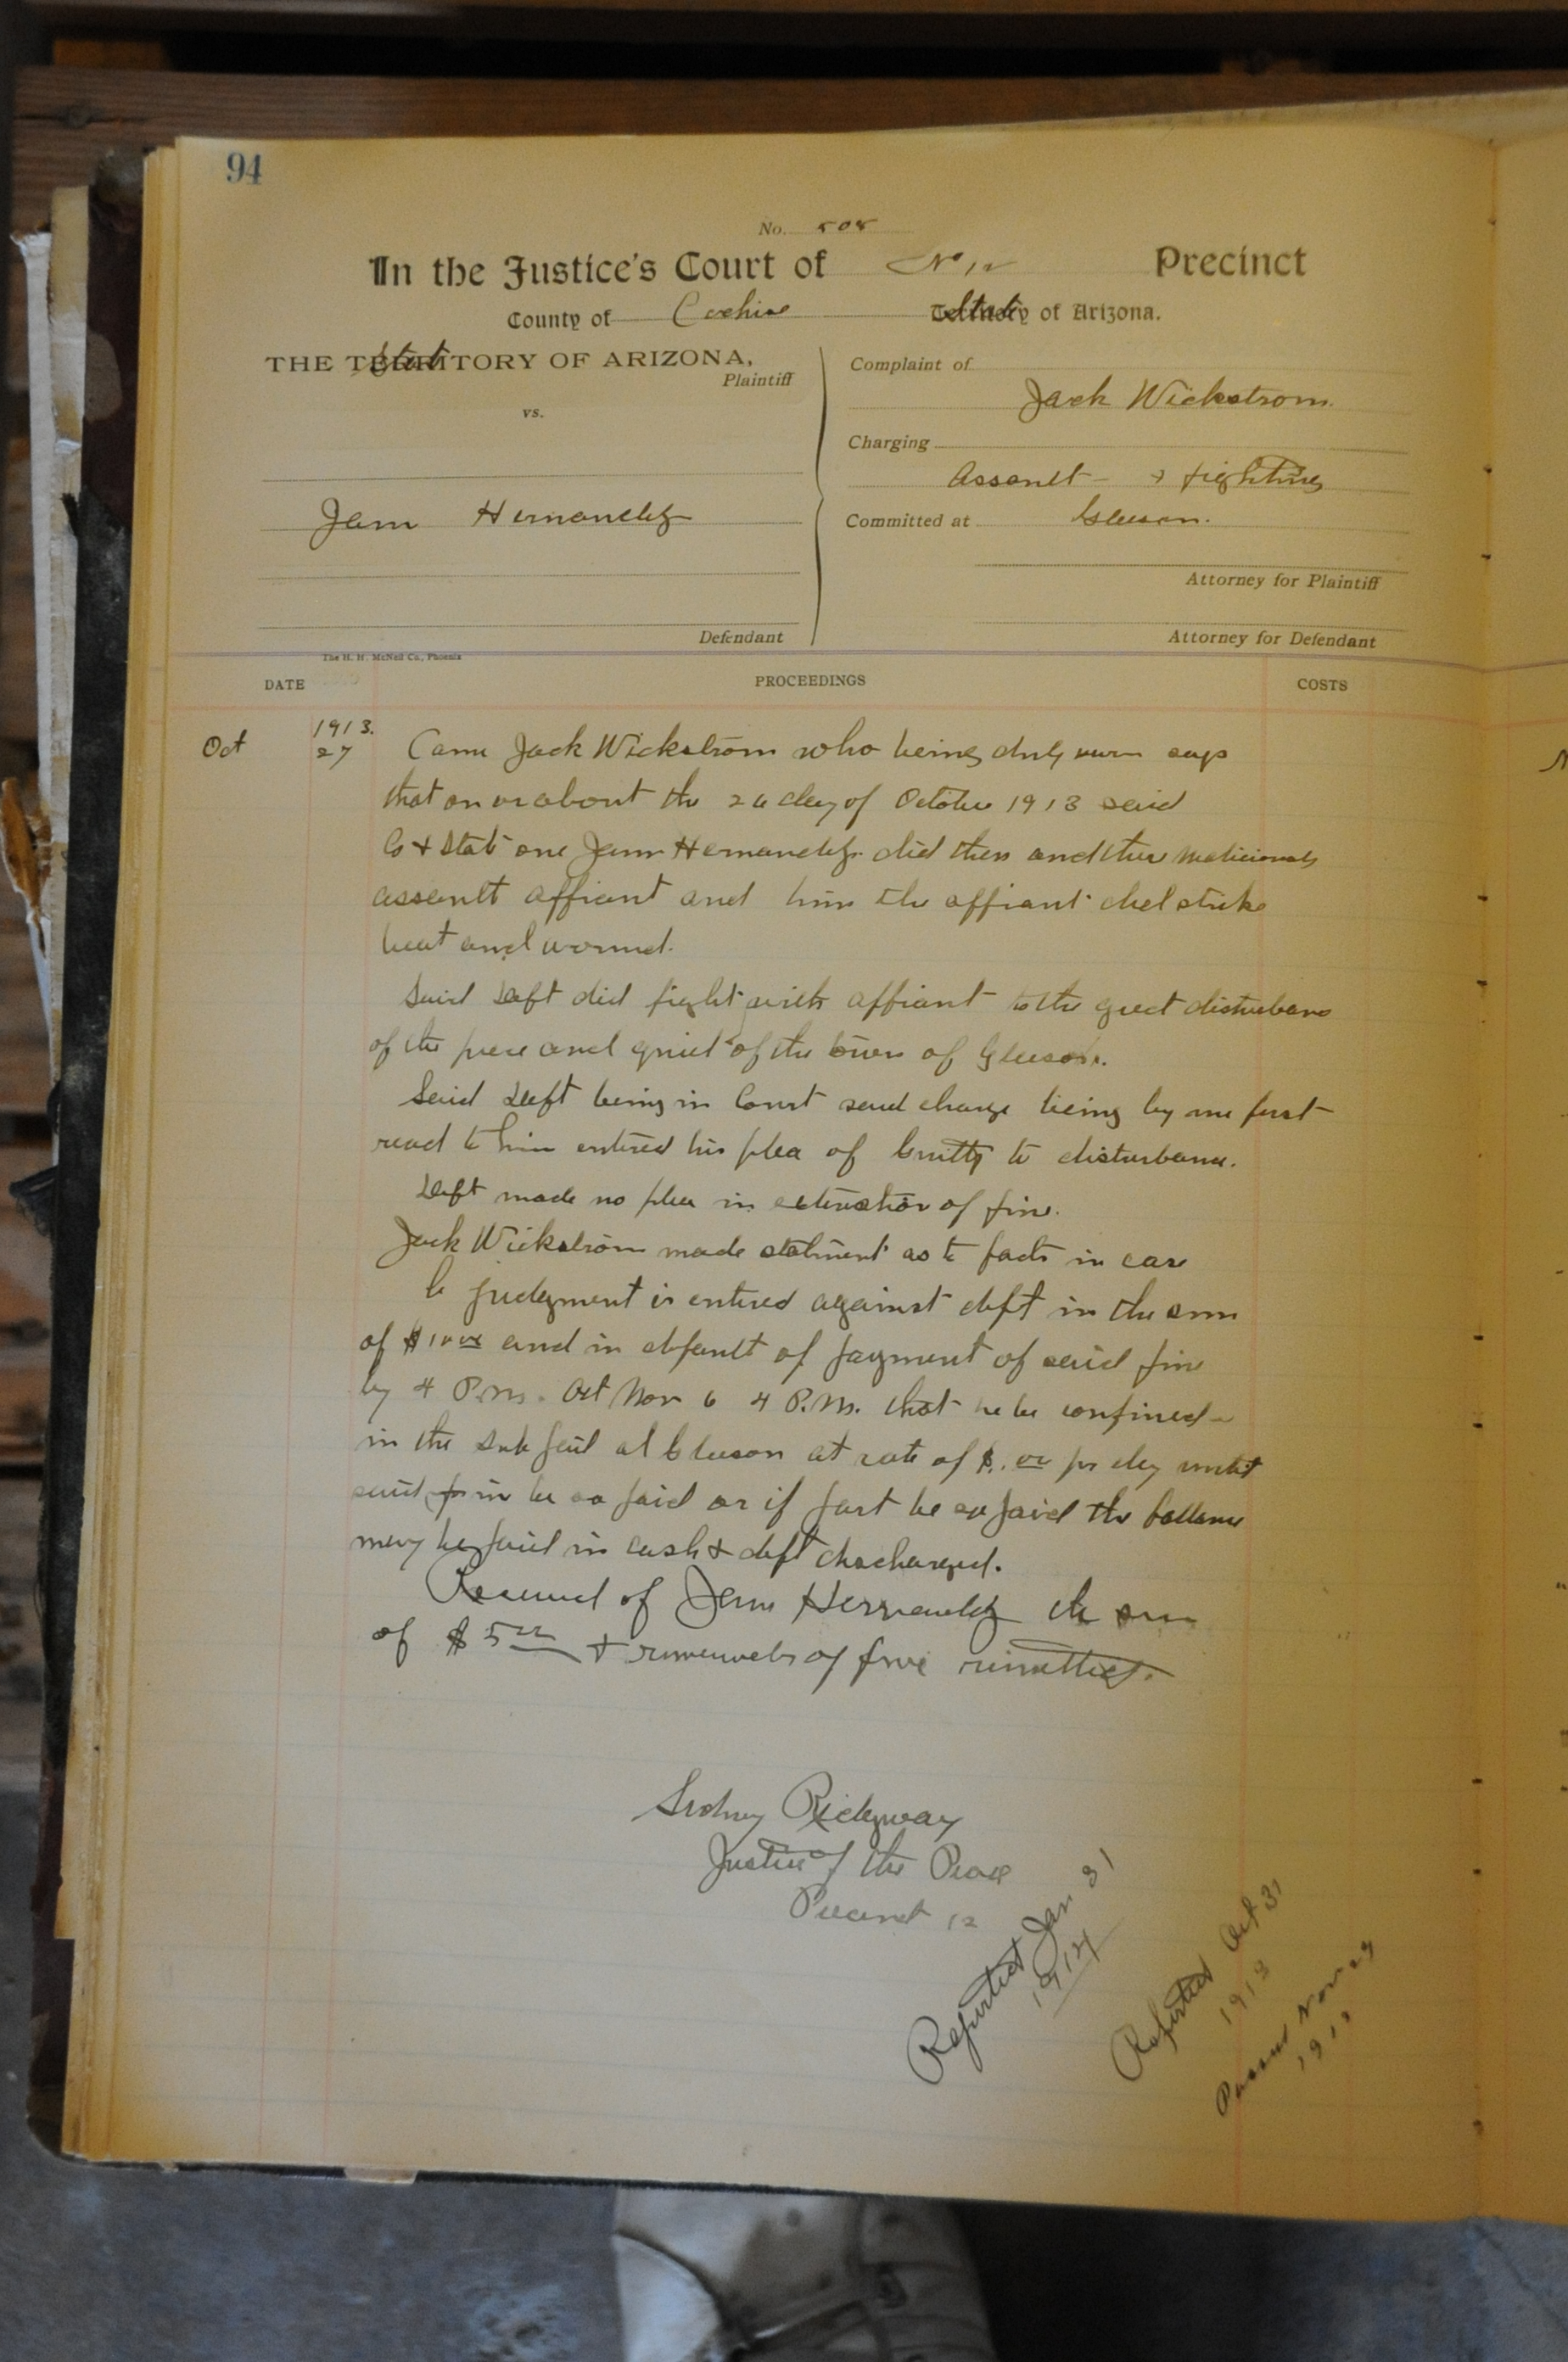 94
No. 508
In the Justice's Court of No 12 Precinct
County of Cochise State of Arizona.
THE State TERRITORY OF ARIZONA,
Plaintiff
vs.
Jam Hernandez
Defendant
Complaint of
Jack Wickstrom.
Charging
Assault & fighting
Committed at Gleeson.
Attorney for Plaintiff
Attorney for Defendant
The H. H. McNeil Co., Phoenix
DATE PROCEEDINGS COSTS
1913.
Oct 27 Came Jack Wickstrom who being duly sworn says
that on or about the 26 day of October 1913 said
Co & State one Jam Hernandez did then and there maliciously
assault affiant and him the affiant did strike
beat and wound.
Said Deft did fight with affiant to the great disturbance
of the peace and quiet of the town of Gleeson.
Said Deft being in Court said charge being by me first
read to him entered his plea of Guilty to disturbance.
Deft made no plea in extenuation of fine.
Jack Wickstrom made statment as to facts in case
judgment is entered against deft in the sum
of $10 00 and in default of payment of said fine
by 4 P.M. Oct Nov 6 4 P.M. that he be confined
in the Sub Jail at Gleeson at rate of $1.00 per day until
said fine be so paid or if part be so paid the ballance
may be paid in cash & deft discharged.
Received of Jam Hernandez the sum
of $5 00 & of fine remitted.
Sidney Ridgway
Justice of the Peace
Precinct 12
Reported Jan 31
1914
Reported Oct 31
1913
Passed Nov
1913